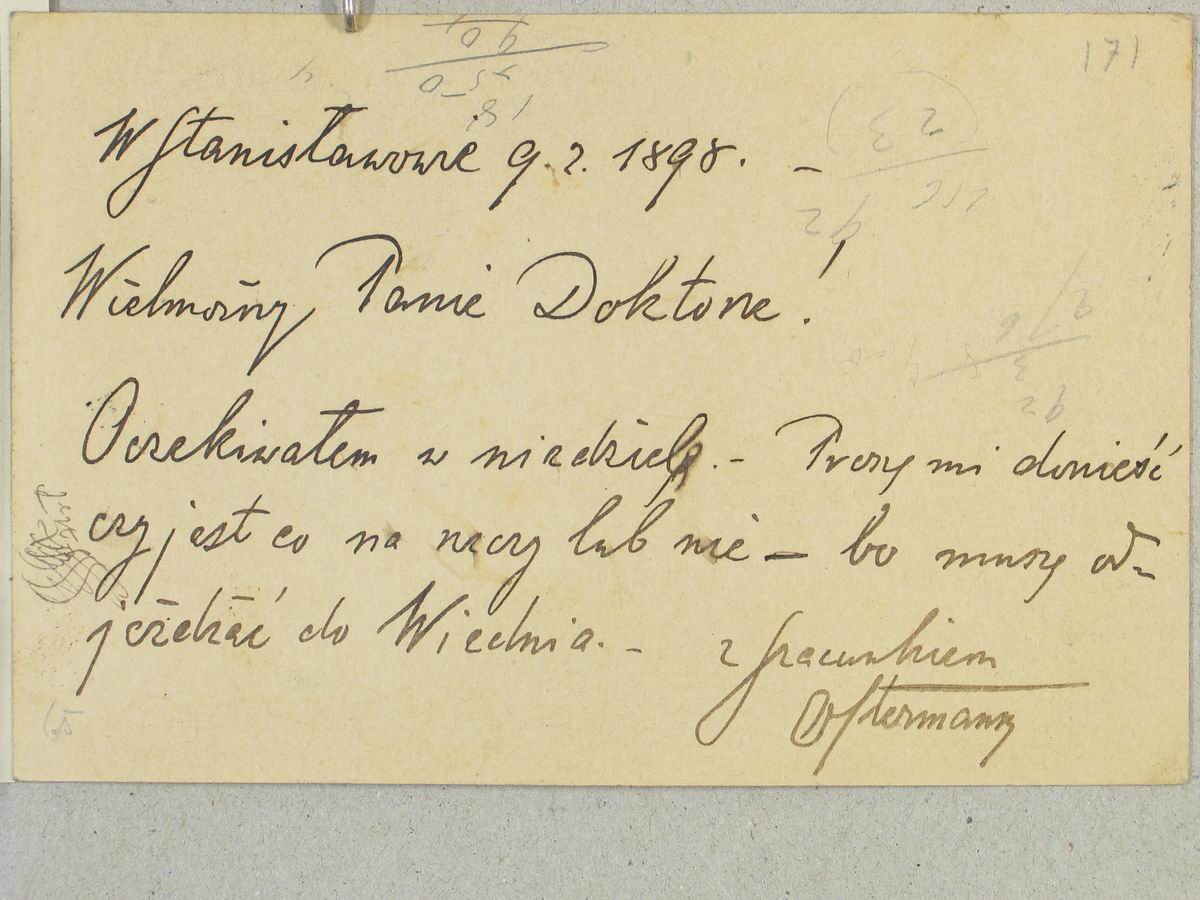 171
W Stanisławowie 9. 2. 1898. –
Wielmożny Panie Doktorze!
Oczekiwałem w niedzielę. – Proszę mi donieść
czy jest co na rzeczy lub nie – bo muszę od=
jeżdżać do Wiednia. –
z szacunkiem
Ostermann